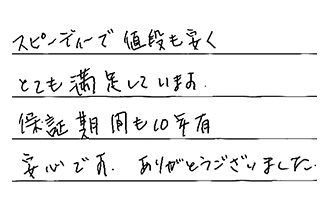 スピーディーで値段も安く
とても満足しています.
保証期間も10年有
安心です. ありがとうございました.